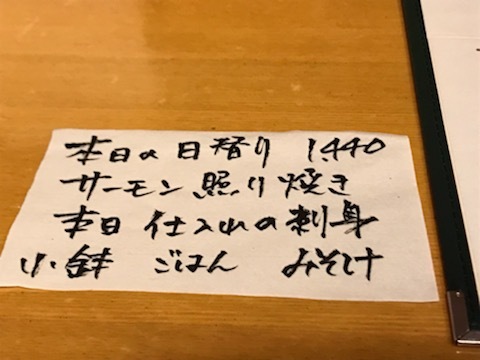 本日の日替り 1,440
サーモン照り焼き
本日仕入れの刺身
小鉢 ごはん みそ汁